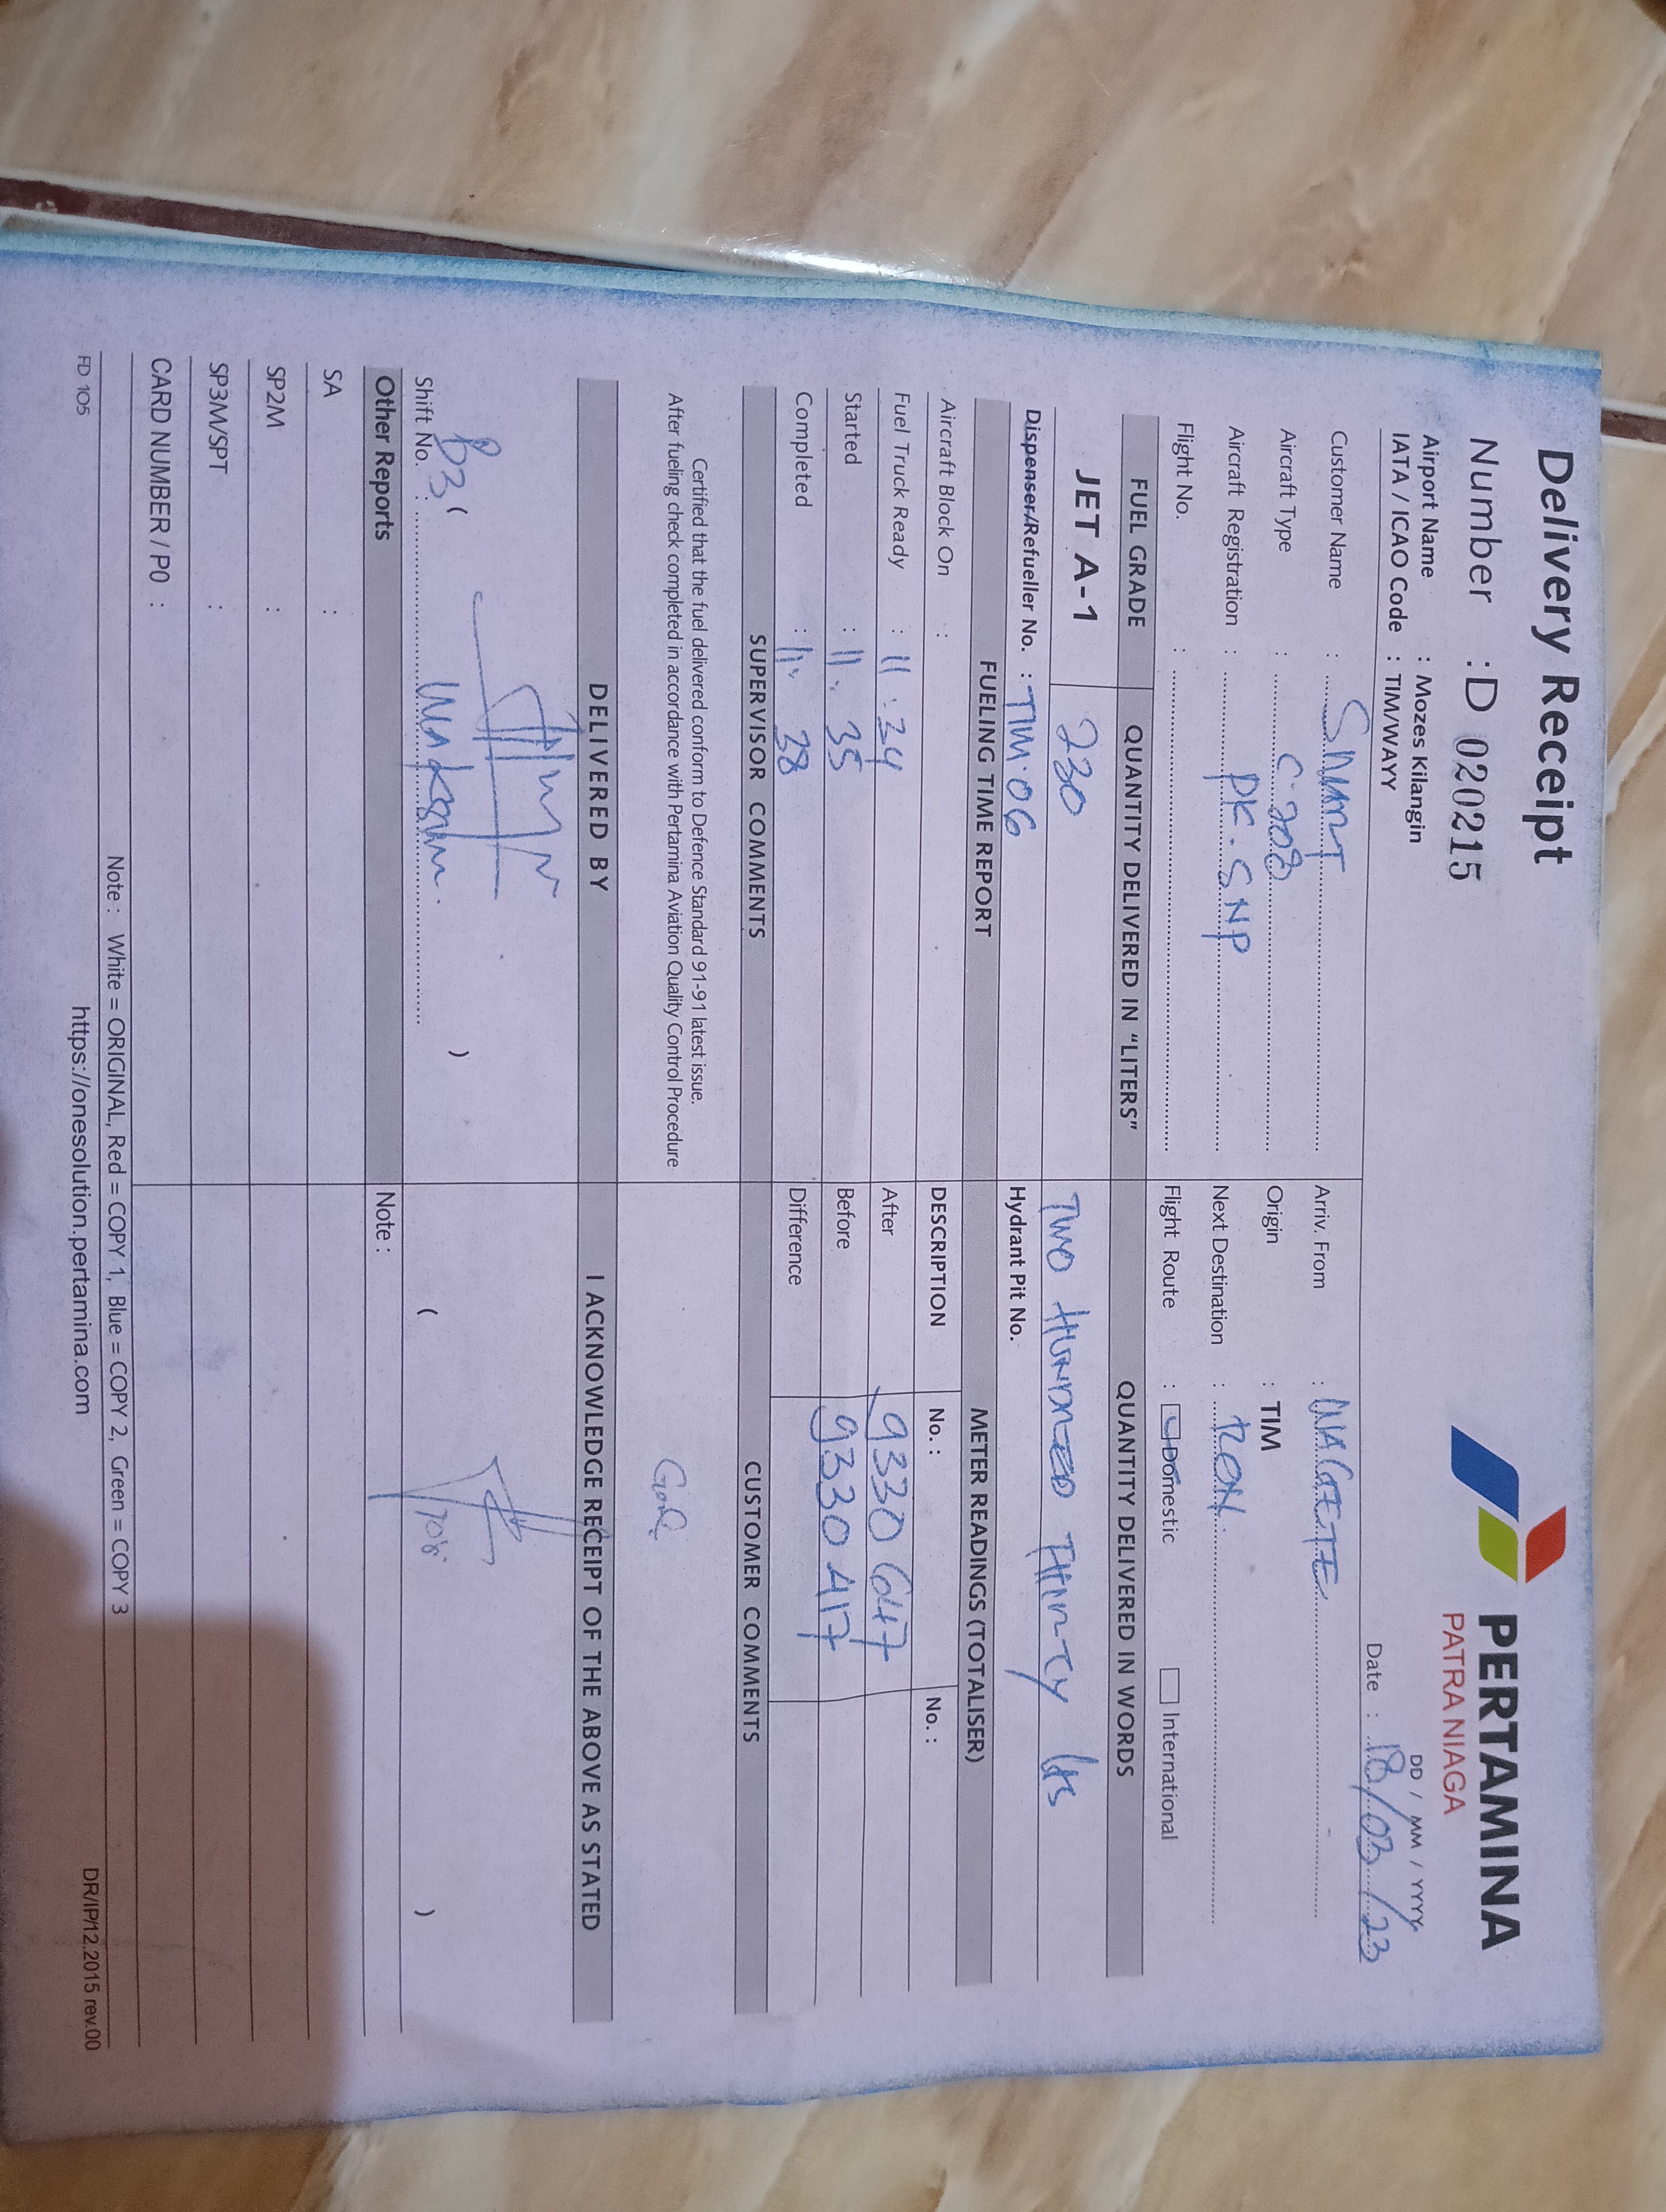 Delivery Receipt
PERTAMINA
PATRA NIAGA
Number : D 020215
Airport Name : Mozes Kilangin
IATA / ICAO Code : TIM/WAYY
DD / MM / YYYY
Date : 18/03/23
Customer Name : SMART
Arriv. From : WAGETE
Aircraft Type : C.208
Origin : TIM
Aircraft Registration : PK.SNP
Next Destination : RON.
Flight No. :
Flight Route : Domestic International
FUEL GRADE QUANTITY DELIVERED IN "LITERS" QUANTITY DELIVERED IN WORDS
JET A-1 230 TWO HUNDRED THIRTY
Dispenser/Refueller No. : TIM.06
Hydrant Pit No.
FUELING TIME REPORT METER READINGS (TOTALISER)
Aircraft Block On :
DESCRIPTION No. : No. :
Fuel Truck Ready : 11.24
After 9330647
Started : 11.35
Before 9330417
Completed : 11.38
Difference
SUPERVISOR COMMENTS CUSTOMER COMMENTS
Certified that the fuel delivered conform to Defence Standard 91-91 latest issue.
After fueling check completed in accordance with Pertamina Aviation Quality Control Procedure
Good
DELIVERED BY I ACKNOWLEDGE RECEIPT OF THE ABOVE AS STATED
Shift No. :
Other Reports Note :
SA :
SP2M :
SP3M/SPT :
CARD NUMBER / PO :
Note : White = ORIGINAL, Red = COPY 1, Blue = COPY 2, Green = COPY 3
FD 105 https://onesolution.pertamina.com DR/IP/12.2015 rev.00